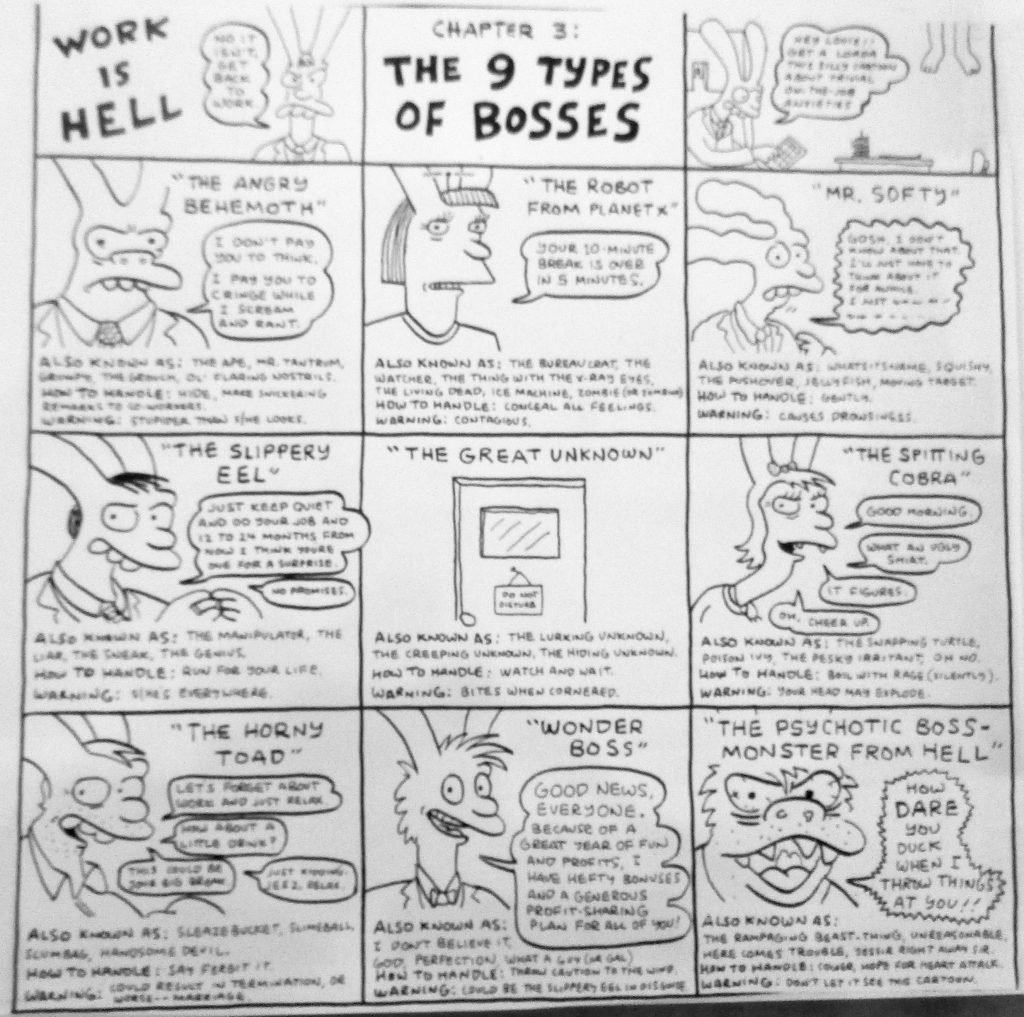 WORK
IS
HELL
NO IT
ISN'T.
GET
BACK
TO
WORK.
CHAPTER 3:
THE 9 TYPES
OF BOSSES
HEY LOUIE!!
GET A LOADA
THIS SILLY CARTOON
ABOUT TRIVIAL
ON-THE-JOB
ANXIETIES
"THE ANGRY
BEHEMOTH"
I DON'T PAY
YOU TO THINK.
I PAY YOU TO
CRINGE WHILE
I SCREAM
AND RANT.
ALSO KNOWN AS: THE APE, MR. TANTRUM,
GRUMPY, THE GROUCH, OL' FLARING NOSTRILS.
HOW TO HANDLE: HIDE, MAKE SNICKERING
REMARKS TO CO-WORKERS.
WARNING: STUPIDER THAN S/HE LOOKS.
"THE ROBOT
FROM PLANET X"
YOUR 10-MINUTE
BREAK IS OVER
IN 5 MINUTES.
ALSO KNOWN AS: THE BUREAUCRAT, THE
WATCHER, THE THING WITH THE X-RAY EYES,
THE LIVING DEAD, ICE MACHINE, ZOMBIE (OR ZOMBINA)
HOW TO HANDLE: CONCEAL ALL FEELINGS.
WARNING: CONTAGIOUS.
"MR. SOFTY"
GOSH, I DON'T
KNOW ABOUT THAT.
I'LL JUST HAVE TO
THINK ABOUT IT
FOR AWHILE.
I JUST
ALSO KNOWN AS: WHATSITSNAME, SQUISHY,
THE PUSHOVER, JELLYFISH, MOVING TARGET.
HOW TO HANDLE: GENTLY.
WARNING: CAUSES DROWSINESS.
"THE SLIPPERY
EEL"
JUST KEEP QUIET
AND DO YOUR JOB AND
12 TO 24 MONTHS FROM
NOW I THINK YOU'RE
DUE FOR A SURPRISE.
NO PROMISES.
ALSO KNOWN AS: THE MANIPULATOR, THE
LIAR, THE SNEAK, THE GENIUS.
HOW TO HANDLE: RUN FOR YOUR LIFE.
WARNING: S/HE'S EVERYWHERE.
"THE GREAT UNKNOWN"
DO NOT
DISTURB
ALSO KNOWN AS: THE LURKING UNKNOWN,
THE CREEPING UNKNOWN, THE HIDING UNKNOWN.
HOW TO HANDLE: WATCH AND WAIT.
WARNING: BITES WHEN CORNERED.
"THE SPITTING
COBRA"
GOOD MORNING.
WHAT AN UGLY
SHIRT.
IT FIGURES.
OH,
CHEER UP.
ALSO KNOWN AS: THE SNAPPING TURTLE,
POISON IVY, THE PESKY IRRITANT, OH NO.
HOW TO HANDLE: BOIL WITH RAGE (SILENTLY).
WARNING: YOUR HEAD MAY EXPLODE.
"THE HORNY
TOAD"
LET'S FORGET ABOUT
WORK AND JUST RELAX.
HOW ABOUT A
LITTLE DRINK?
THIS COULD BE
YOUR BIG BREAK
JUST KIDDING.
JEEZ, RELAX.
ALSO KNOWN AS: SLEAZEBUCKET, SLIMEBALL,
SCUMBAG, HANDSOME DEVIL.
HOW TO HANDLE: SAY FERGIT IT.
WARNING: COULD RESULT IN TERMINATION, OR
WORSE -- MARRIAGE.
"WONDER
BOSS"
GOOD NEWS,
EVERYONE.
BECAUSE OF A
GREAT YEAR OF FUN
AND PROFITS, I
HAVE HEFTY BONUSES
AND A GENEROUS
PROFIT-SHARING
PLAN FOR ALL OF YOU!
ALSO KNOWN AS:
I DON'T BELIEVE IT,
GOD, PERFECTION, WHAT A GUY (OR GAL)
HOW TO HANDLE: THROW CAUTION TO THE WIND.
WARNING: COULD BE THE SLIPPERY EEL IN DISGUISE.
"THE PSYCHOTIC BOSS-
MONSTER FROM HELL"
HOW
DARE
YOU
DUCK
WHEN I
THROW THINGS
AT YOU!!
ALSO KNOWN AS:
THE RAMPAGING BEAST-THING, UNREASONABLE,
HERE COMES TROUBLE, YESSIR RIGHT AWAY SIR.
HOW TO HANDLE: COWER, HOPE FOR HEART ATTACK.
WARNING: DON'T LET IT SEE THIS CARTOON.